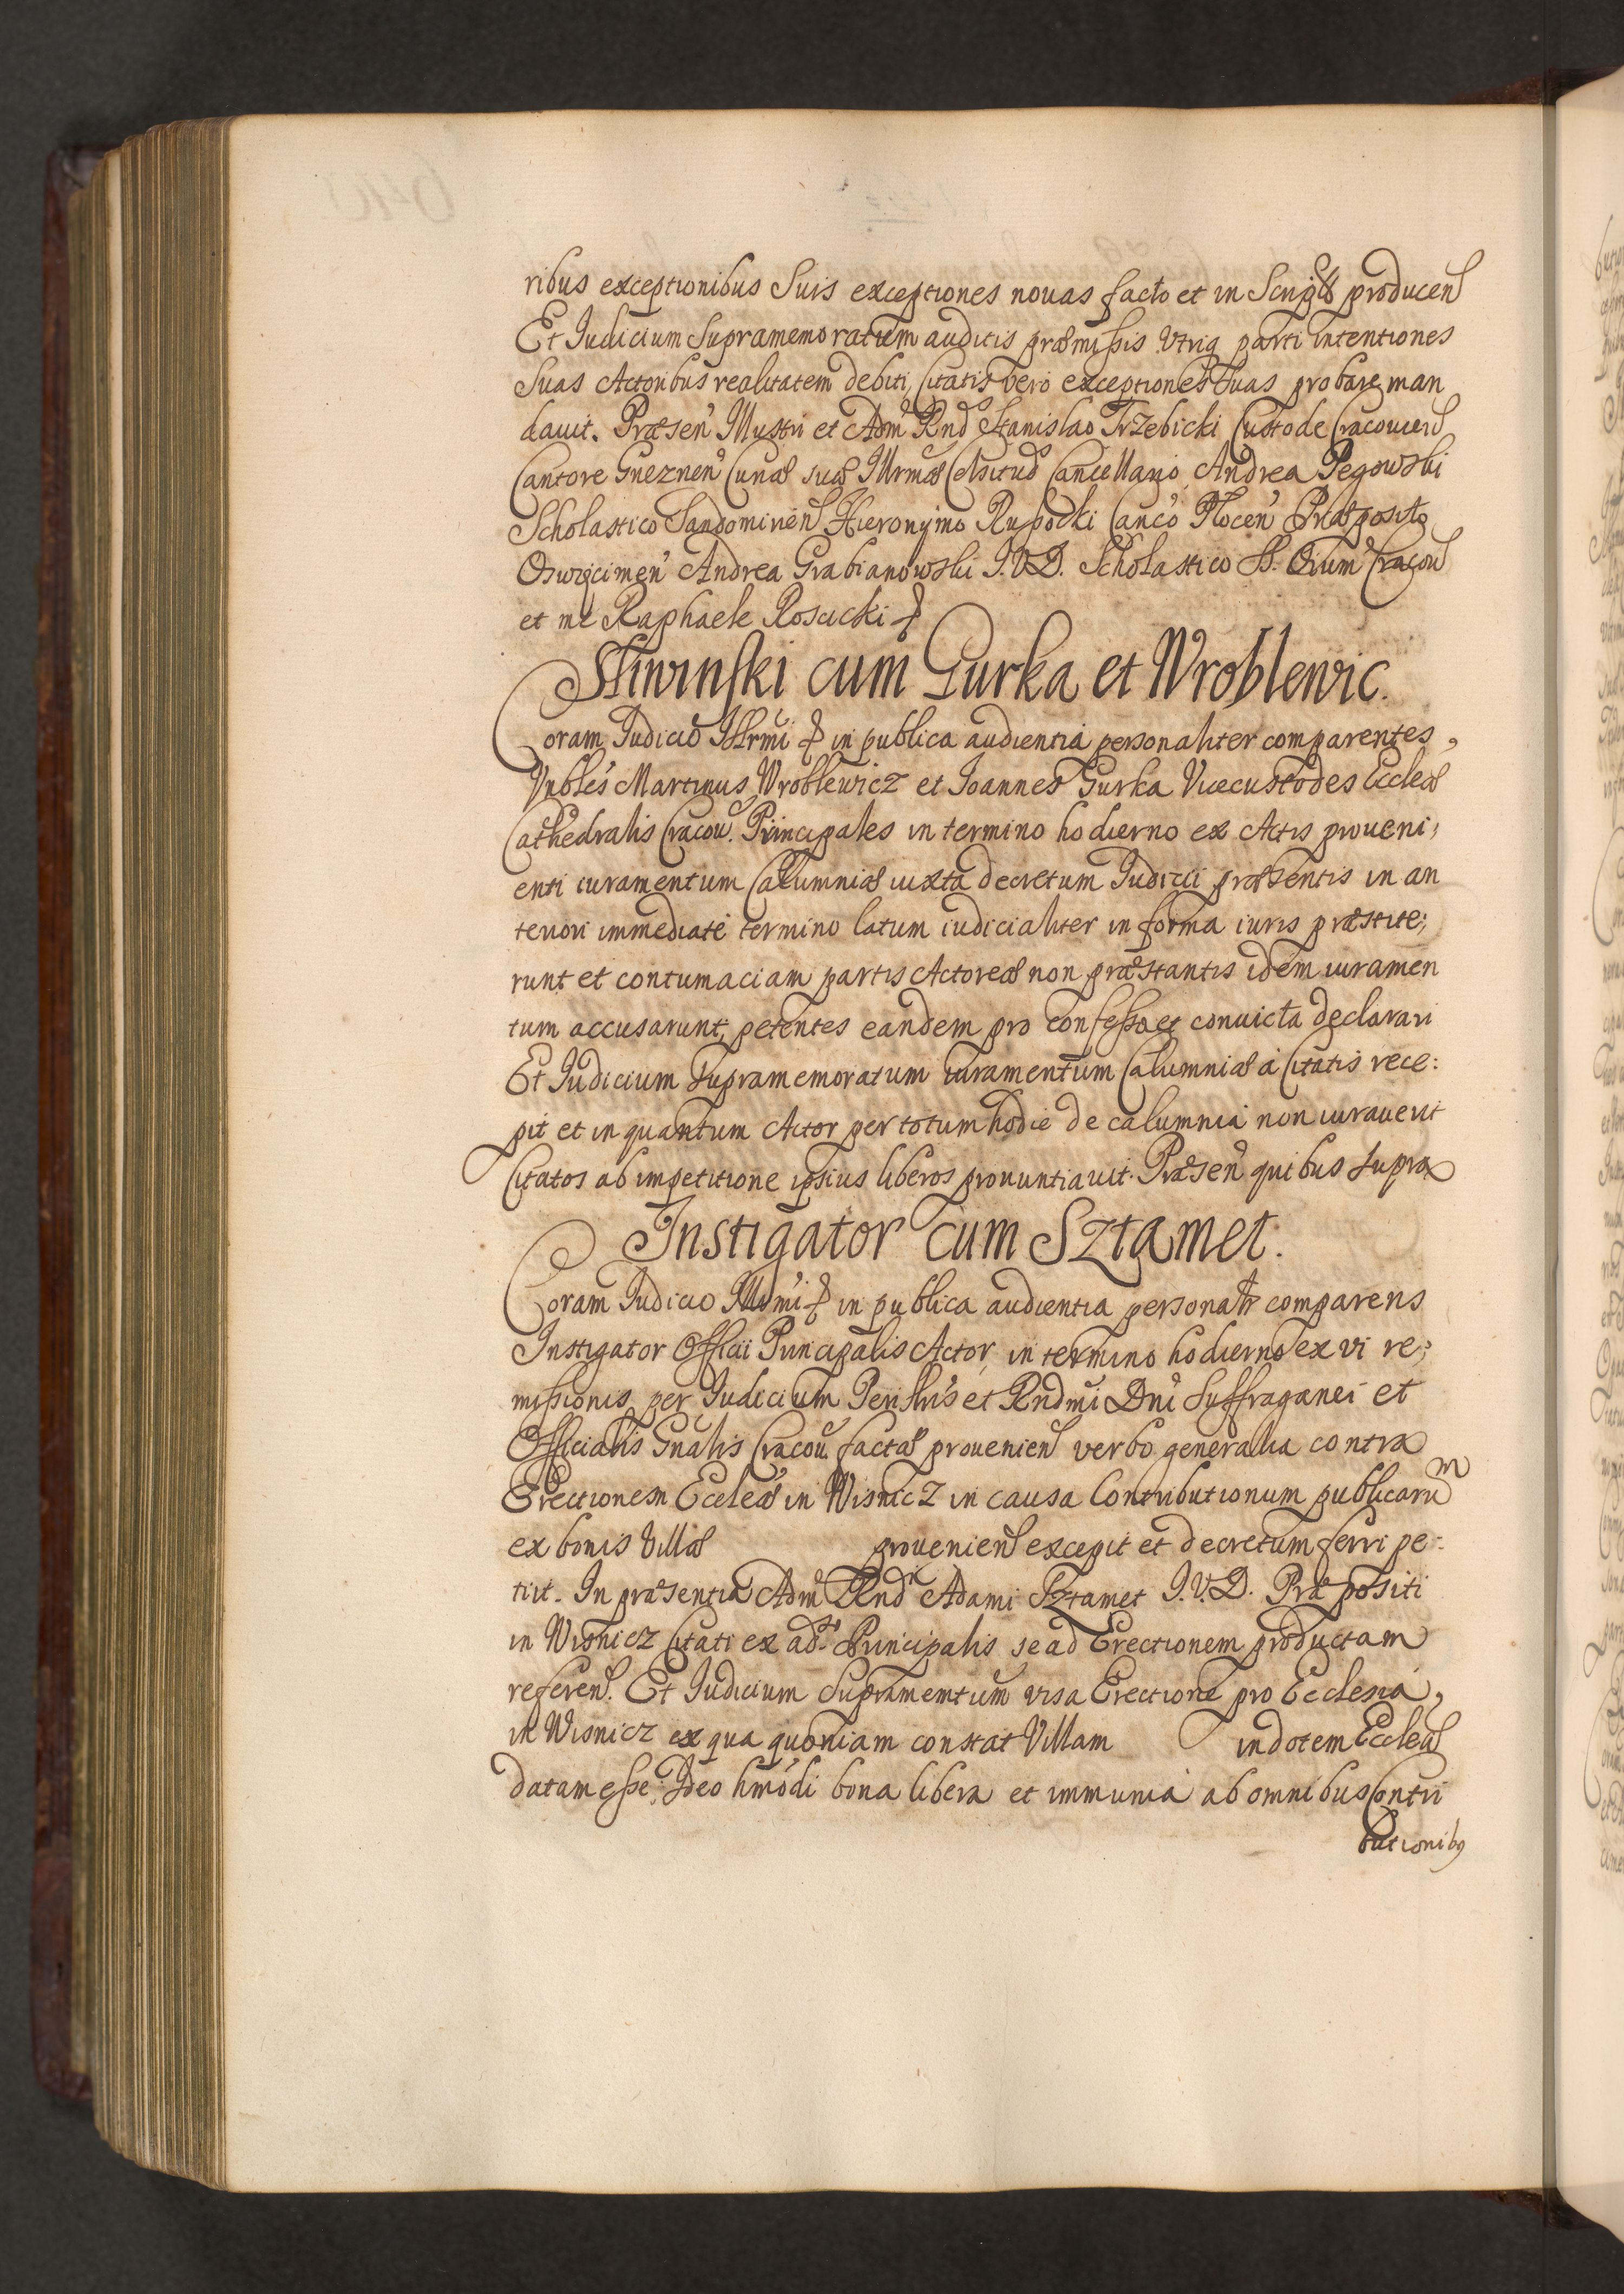 ribus exceptionibus Suis exceptiones nouas facto et in Scripto producen
Et Judicium Supramemoratum auditis præmissis Vtriq parti intentiones
Suas Actoribus realitatem debiti, Citatis vero exceptiones Suas probare man
dauit. Præsen Illustri et Adm Rnd Stanislao Trzebicki Custode Cracouien
Cantore Gneznen Curiæ suæ Illrmæ Celsitud Cancellario, Andrea Pegowski
Scholastico Sandomirien Hieronymo Rupocki Canco Plocen Præposito
Oswięcimen Andrea Grabianowski I.V.D. Scholastico SS. Oium Cracou
et me Raphaele Rosucki
Sliwinski cum Gurka et Wroblewic.
Coram Judicio Illrmi in publica audientia personaliter comparentes,
Vnbles Martinus Wroblewicz et Joannes Gurka Vicecustodes Eccleæ
Cathedralis Cracou. Principales in termino hodierno ex Actis proueni,
enti iuramentum Calumniæ iuxta decretum Judicii præsentis in an
teriori immediate termino latum iudicialiter in forma iuris præstite,
runt et contumaciam partis Actoreæ non præstantis idem iuramen
tum accusarunt, petentes eandem pro confessa et conuicta declarari
Et Judicium Supramemoratum iuramentum Calumniæ a Citatis rece:
pit et in quantum Actor per totum hodie de calumnia non iurauerit
Citatos ab impetitione ipsius liberos pronuntiauit. Præsen quibus Supra
Instigator cum Sztamet.
Coram Judicio Illrmi in publica audientia personalr comparens
Instigator Officii Principalis Actor in termino hodierno ex vi re,
missionis per Judicium Perillris et Rndmi Dni Suffraganei et
Officialis Gnalis Cracou factæ prouenien verbo generalia contra
Erectionem Eccleæ in Wisnicz in causa Contributionum publicarum
ex bonis Villæ prouenien excepit et decretum ferri pe-
tiit. In præsentia Adm Rnd Adami Sztamet I.V.D. Præpositi
in Wisnicz Citati ex adso Principalis se ad Erectionem productam
referen. Et Judicium Supramemtum visa Erectione pro Ecclesia,
in Wisnicz ex qua quoniam constat Villam in dotem Eccleæ
datam esse. Ideo hmodi bona libera et immunia ab omnibus Contri
butionibq